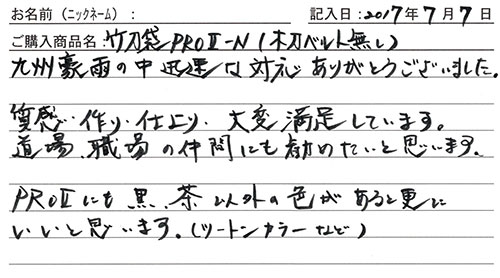 お名前（ニックネーム）： 記入日：2017年7月7日
ご購入商品名：竹刀袋PROⅡ-N（木刀ベルト無し）
九州豪雨の中迅速な対応ありがとうございました。
質感・作り・仕上り、大変満足しています。
道場、職場の仲間にも勧めたいと思います。
PROⅡにも黒、茶以外の色があると更に
いいと思います。（ツートンカラーなど）